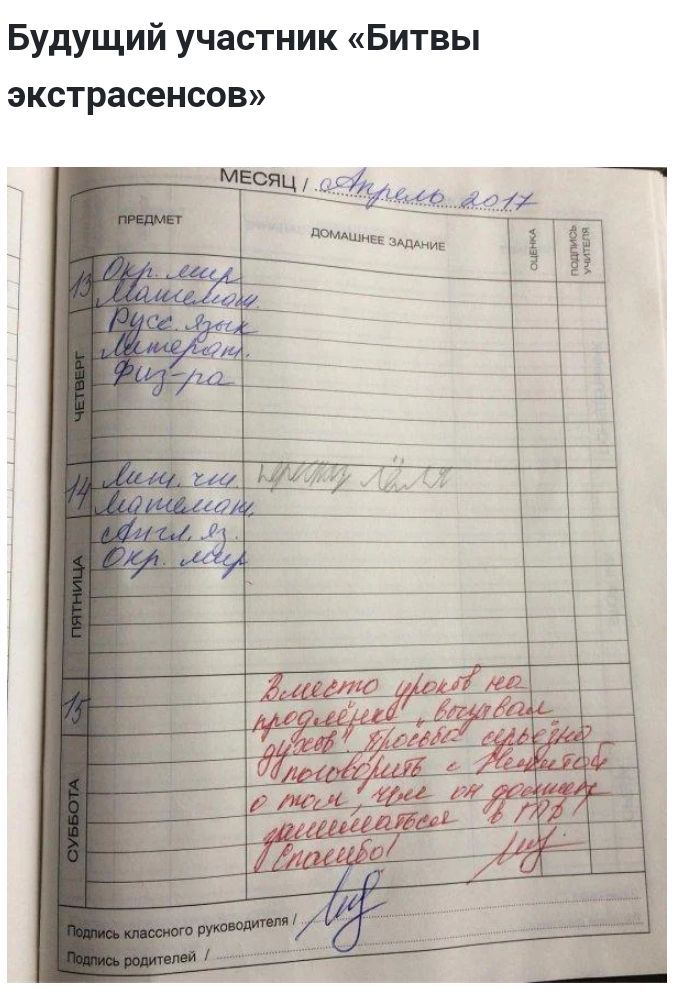 Будущий участник «Битвы
экстрасенсов»
МЕСЯЦ / Апрель 2017
ПРЕДМЕТ
ДОМАШНЕЕ ЗАДАНИЕ
ОЦЕНКА
ПОДПИСЬ УЧИТЕЛЯ
13
ЧЕТВЕРГ
Окр. мир
Математ.
Русс. язык
Литерат.
Физ-ра
14
ПЯТНИЦА
Лит. чт. Лёля
Математ.
Англ. яз.
Окр. мир
15
СУББОТА
Вместо уроков на
продлёнке "вызывал
духов". Просьба серьёзно
поговорить с Никитой
о том, чем он должен
заниматься в ГПД!
Спасибо!
Подпись классного руководителя /
Подпись родителей /